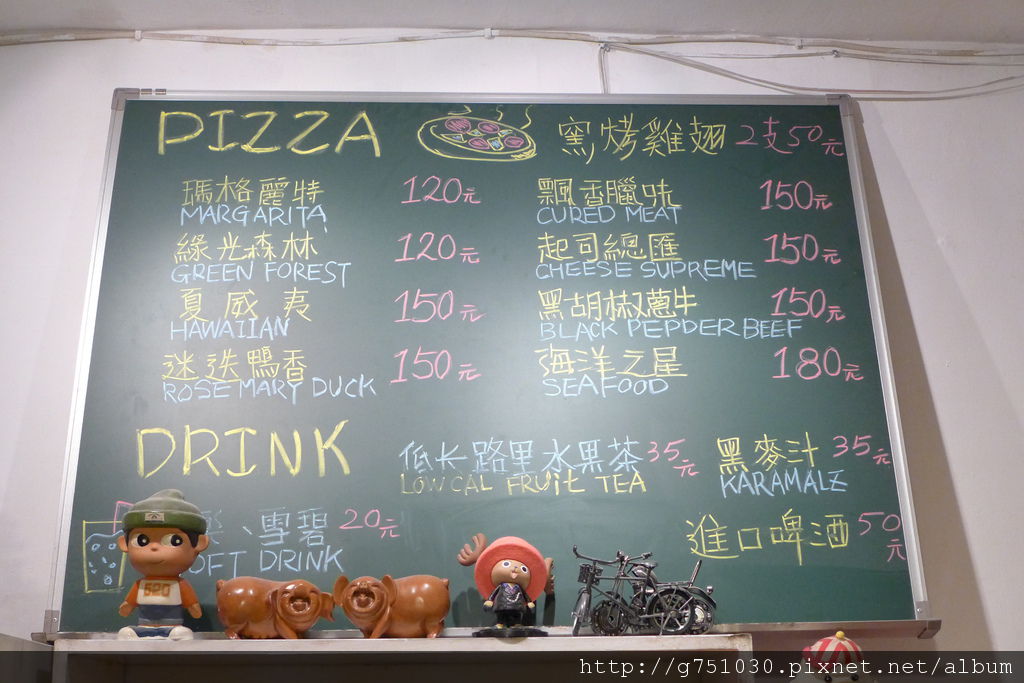 PIZZA
窯烤雞翅 2支50元
瑪格麗特 120元
MARGARITA
飄香臘味 150元
CURED MEAT
綠光森林 120元
GREEN FOREST
起司總匯 150元
CHEESE SUPREME
夏威夷 150元
HAWAIIAN
黑胡椒蔥牛 150元
BLACK PEPPER BEEF
迷迭鴨香 150元
ROSE MARY DUCK
海洋之星 180元
SEAFOOD
DRINK
低卡路里水果茶 35元
LOW CAL FRUIT TEA
黑麥汁 35元
KARAMALZ
樂、雪碧 20元
OFT DRINK
進口啤酒 50元
520
http://g751030.pixnet.net/album